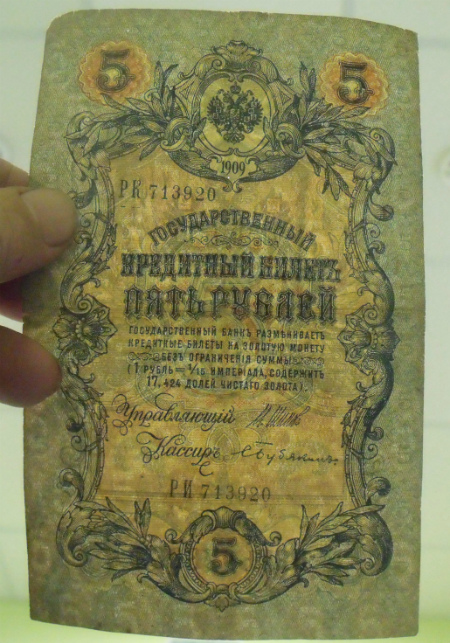 5 5
1909
РК 713920
ГОСУДАРСТВЕННЫЙ
КРЕДИТНЫЙ БИЛЕТЪ
ПЯТЬ РУБЛЕЙ
ГОСУДАРСТВЕННЫЙ БАНКЪ РАЗМѢНИВАЕТЪ
КРЕДИТНЫЕ БИЛЕТЫ НА ЗОЛОТУЮ МОНЕТУ
БЕЗЪ ОГРАНИЧЕНІЯ СУММЫ
(1 РУБЛЬ = 1/15 ИМПЕРІАЛА, СОДЕРЖИТЪ
17,424 ДОЛЕЙ ЧИСТАГО ЗОЛОТА).
Управляющій
Кассиръ
РК 713920
5